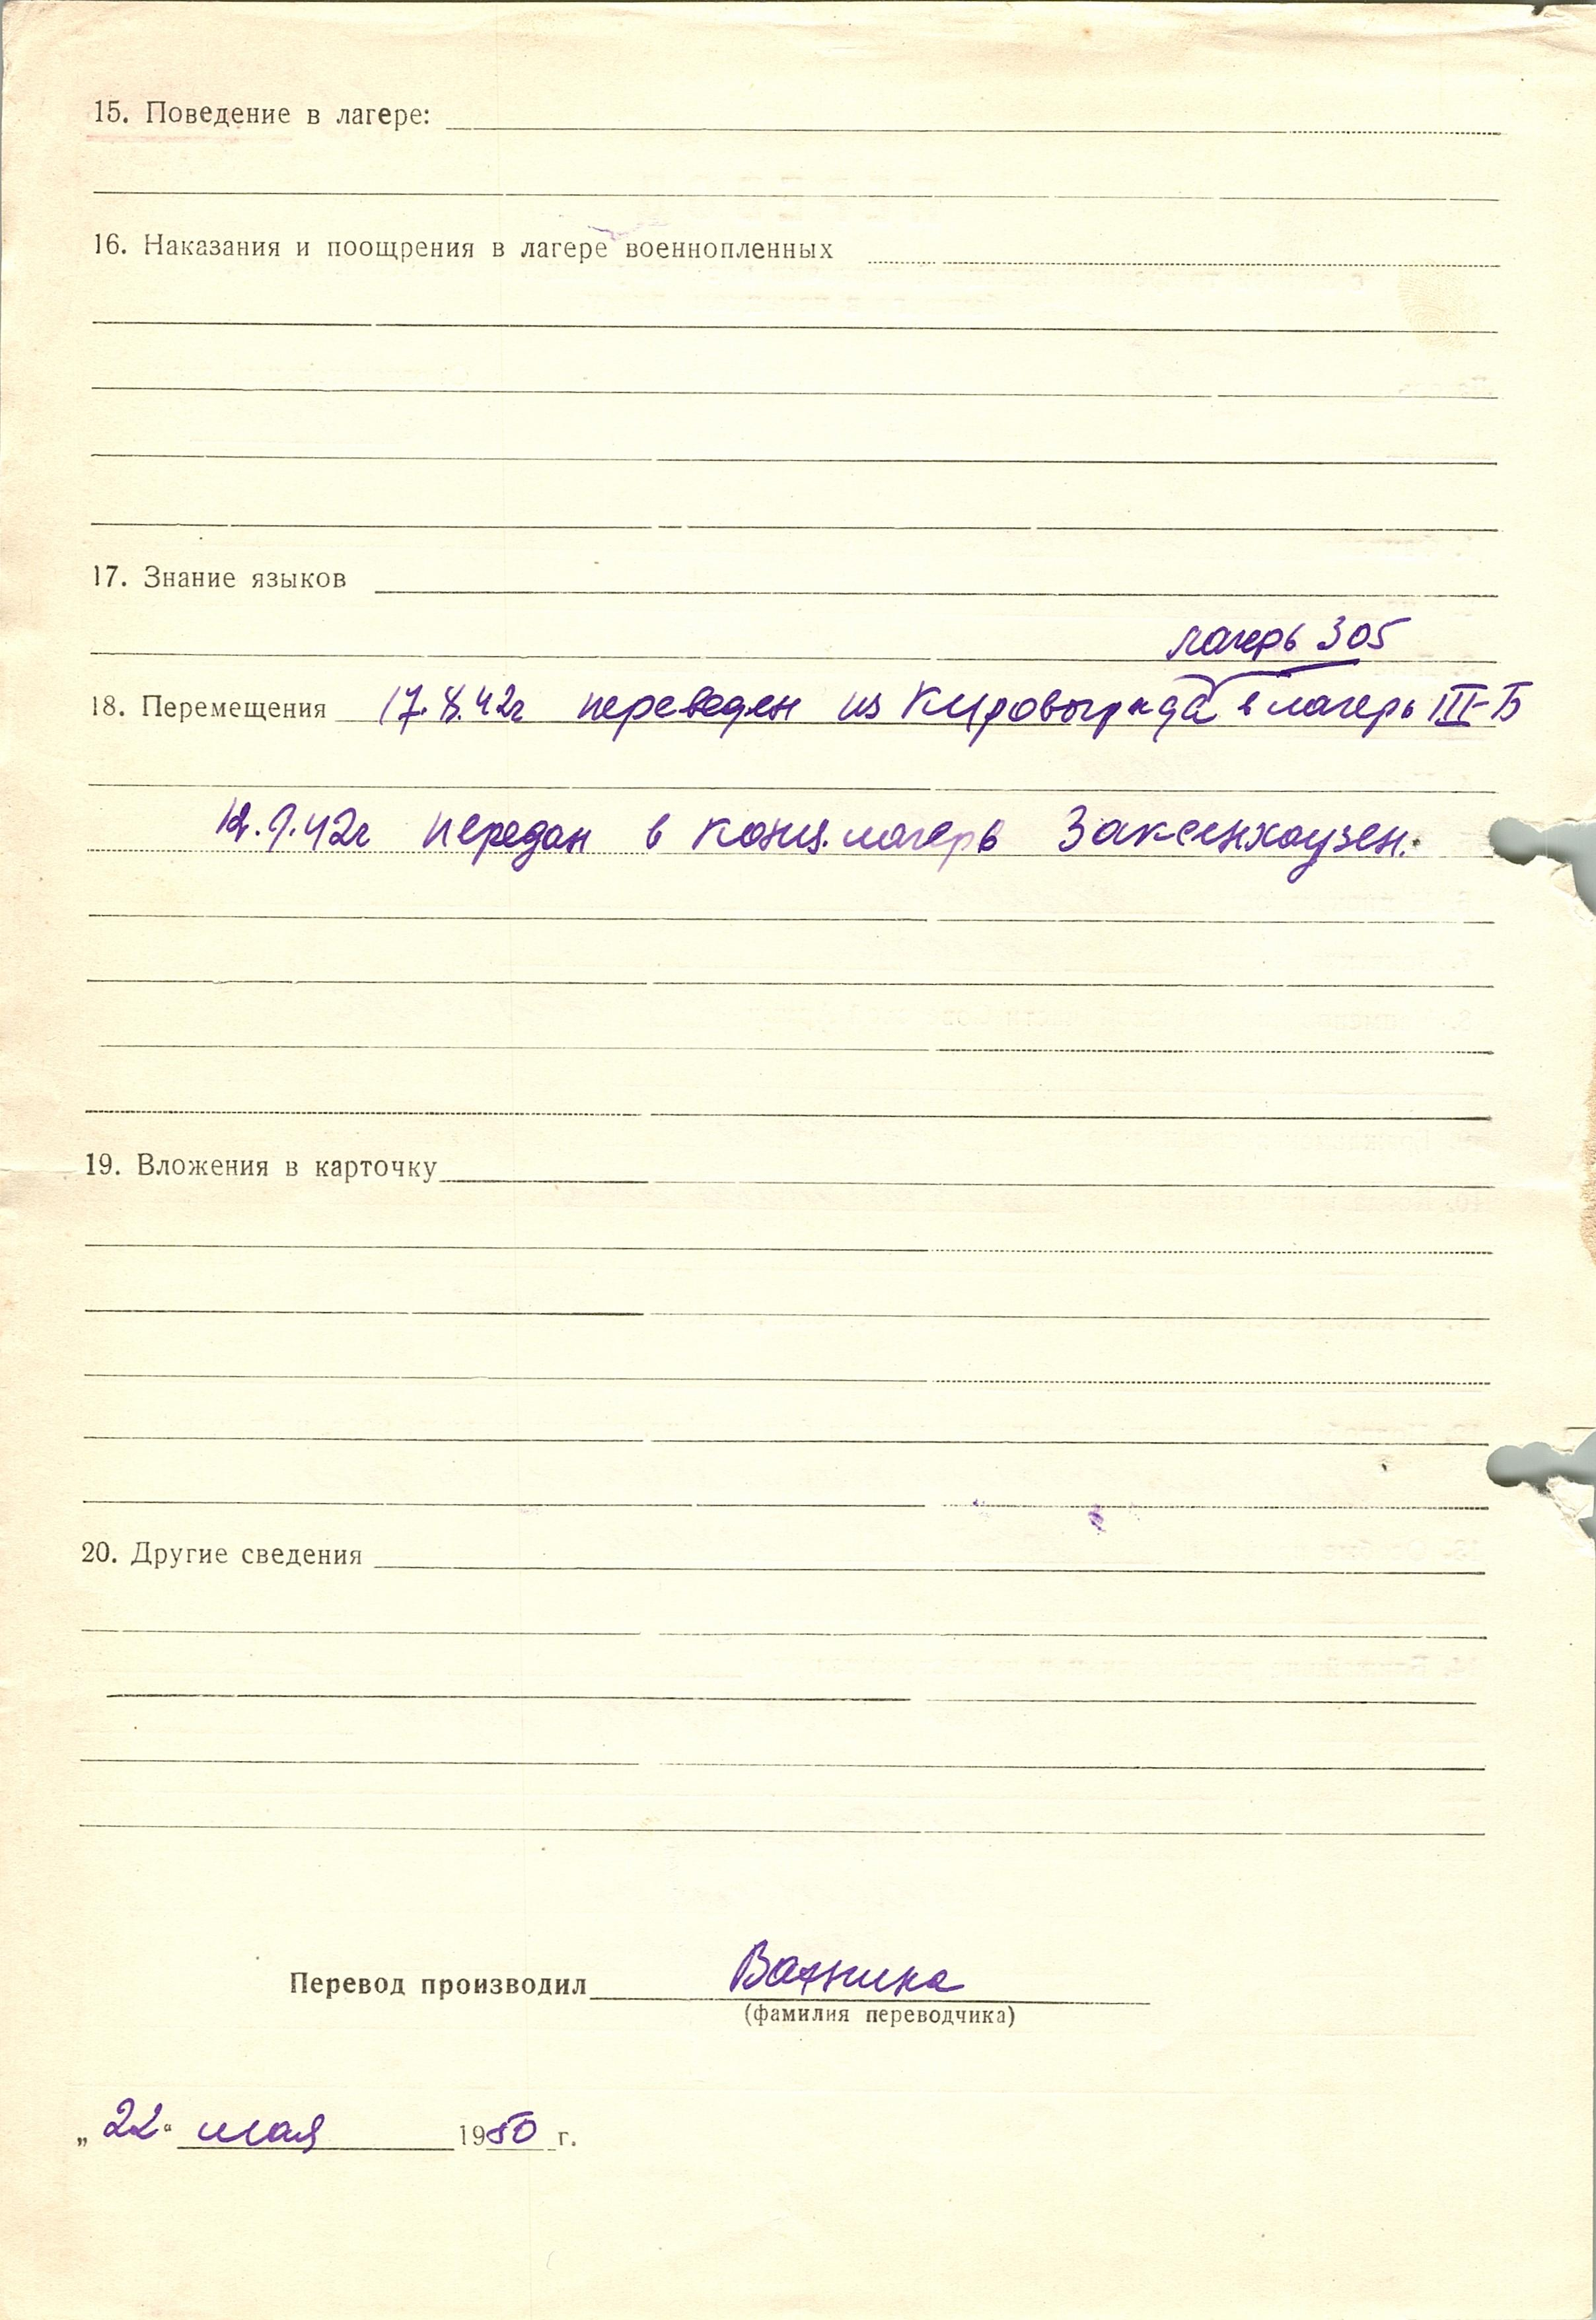 15. Поведение в лагере:
16. Наказания и поощрения в лагере военнопленных
17. Знание языков
лагерь 305
18. Перемещения 17.8.42г переведен из Кировограда в лагерь III-Б
12.9.42г передан в конц.лагерь Заксенхаузен.
19. Вложения в карточку
20. Другие сведения
Перевод производил
(фамилия переводчика)
„22“ мая 1950 г.